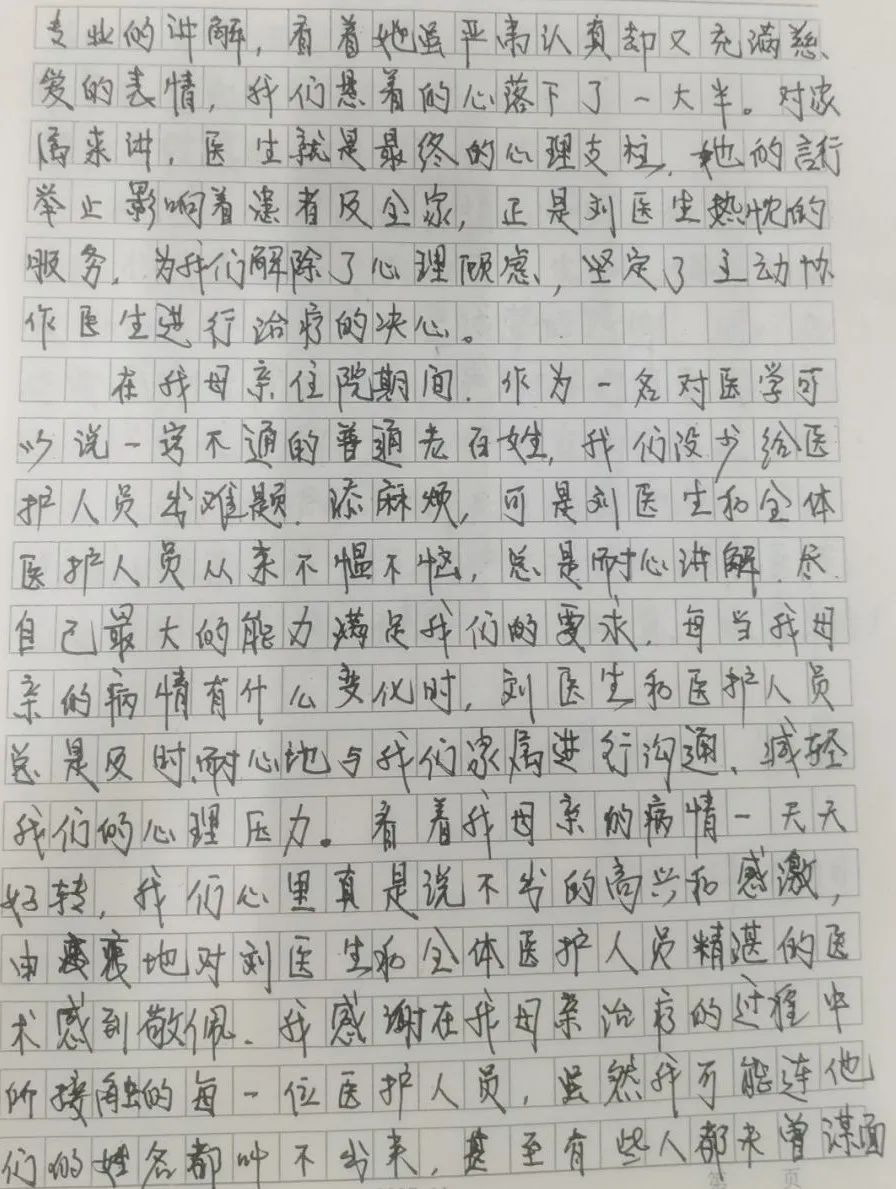 专业的讲解，看着她虽严肃认真却又充满慈
爱的表情，我们悬着的心落下了一大半。对家
属来讲，医生就是最终的心理支柱，她的言行
举止影响着患者及全家，正是刘医生热忱的
服务，为我们解除了心理顾虑，坚定了主动协
作医生进行治疗的决心。
在我母亲住院期间，作为一名对医学可
以说一窍不通的普通老百姓，我们没少给医
护人员出难题、添麻烦，可是刘医生和全体
医护人员从来不愠不恼，总是耐心讲解、尽
自己最大的能力满足我们的要求，每当我母
亲的病情有什么变化时，刘医生和医护人员
总是及时、耐心地与我们家属进行沟通、减轻
我们的心理压力。看着我母亲的病情一天天
好转，我们心里真是说不出的高兴和感激，
由衷地对刘医生和全体医护人员精湛的医
术感到敬佩、我感谢在我母亲治疗的过程中
所接触的每一位医护人员，虽然我可能连他
们的姓名都叫不出来，甚至有些人都未曾谋面
第 页